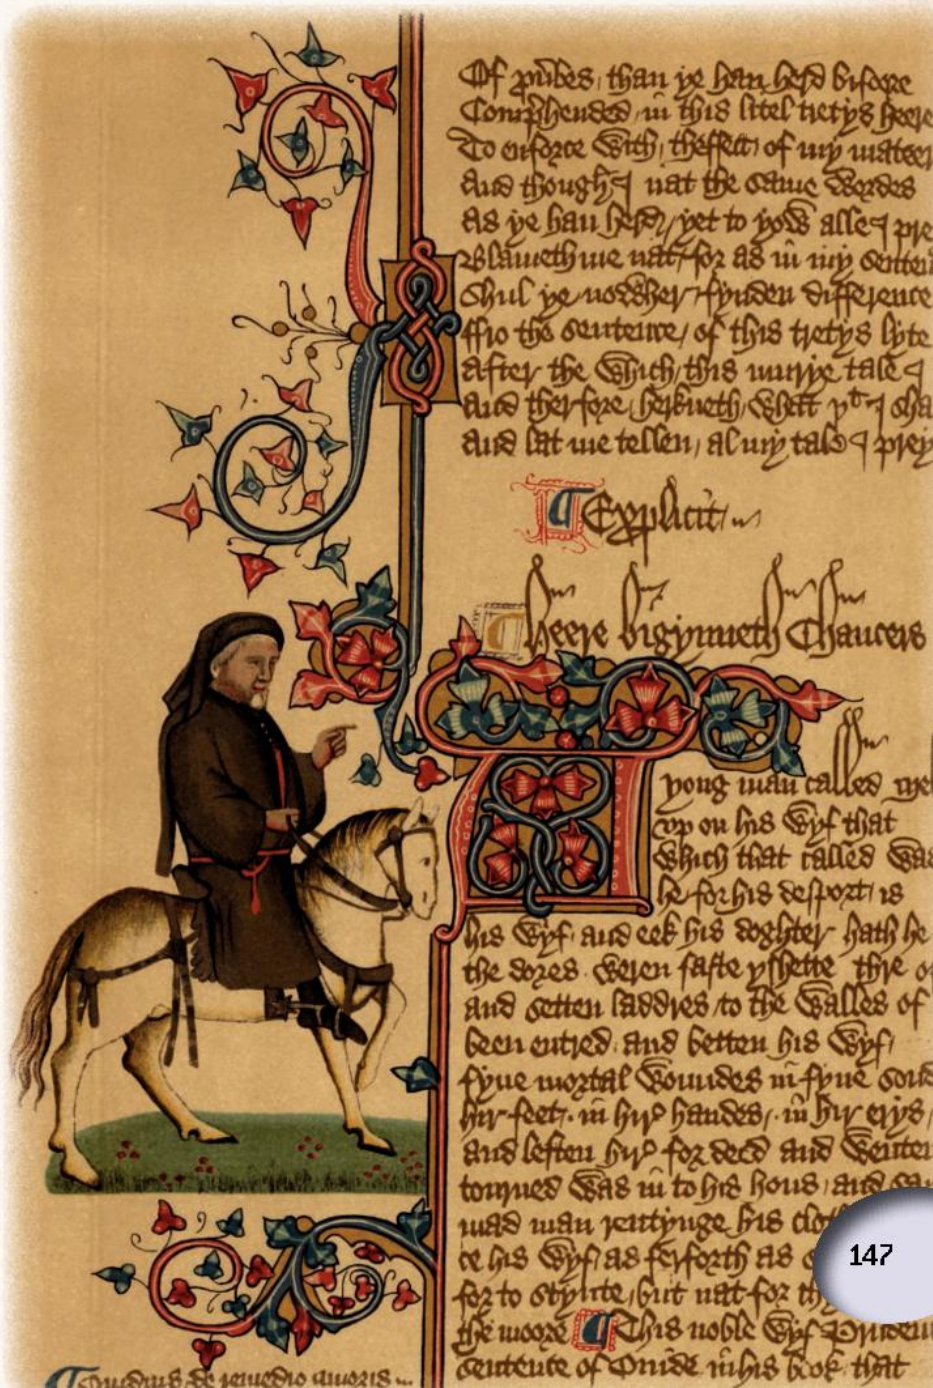 Of prũbes, than ye han herd bifoore
Comprhended, in this litel tretys heere
To enforce with, theffect, of my mateer
And though, I nat the same wordes
As ye han herd, yet to yow alle I pre
Blameth me nat, for as in my senten
Shul ye nowher fynden difference
ffro the sentence, of this tretys lyte
After the which, this murye tale I
And therfore, herkneth, what yt I sha
And lat me tellen, al my tale I prey
Explicit
Heere bigynneth Chaucers
yong man called Mel
vp on his wyf that
which that called was
he for his desport, is
his wyf, and eek his doghter hath he
the dores weren faste yshette thre o
and setten laddres, to the walles of
been entred, and betten his wyf,
fyue mortal woundes in fyue
hir feet, in hir handes, in hir erys,
and leften hir for deed and wenten
tourned was in to his hous, and sau
mad man rentynge his clo
ce his wyf, as ferforth as
for to stynte, but nat for th
the moore This noble wyf Pruden
sentence of Ouide in his book that
Ouidius de remedio amoris
147